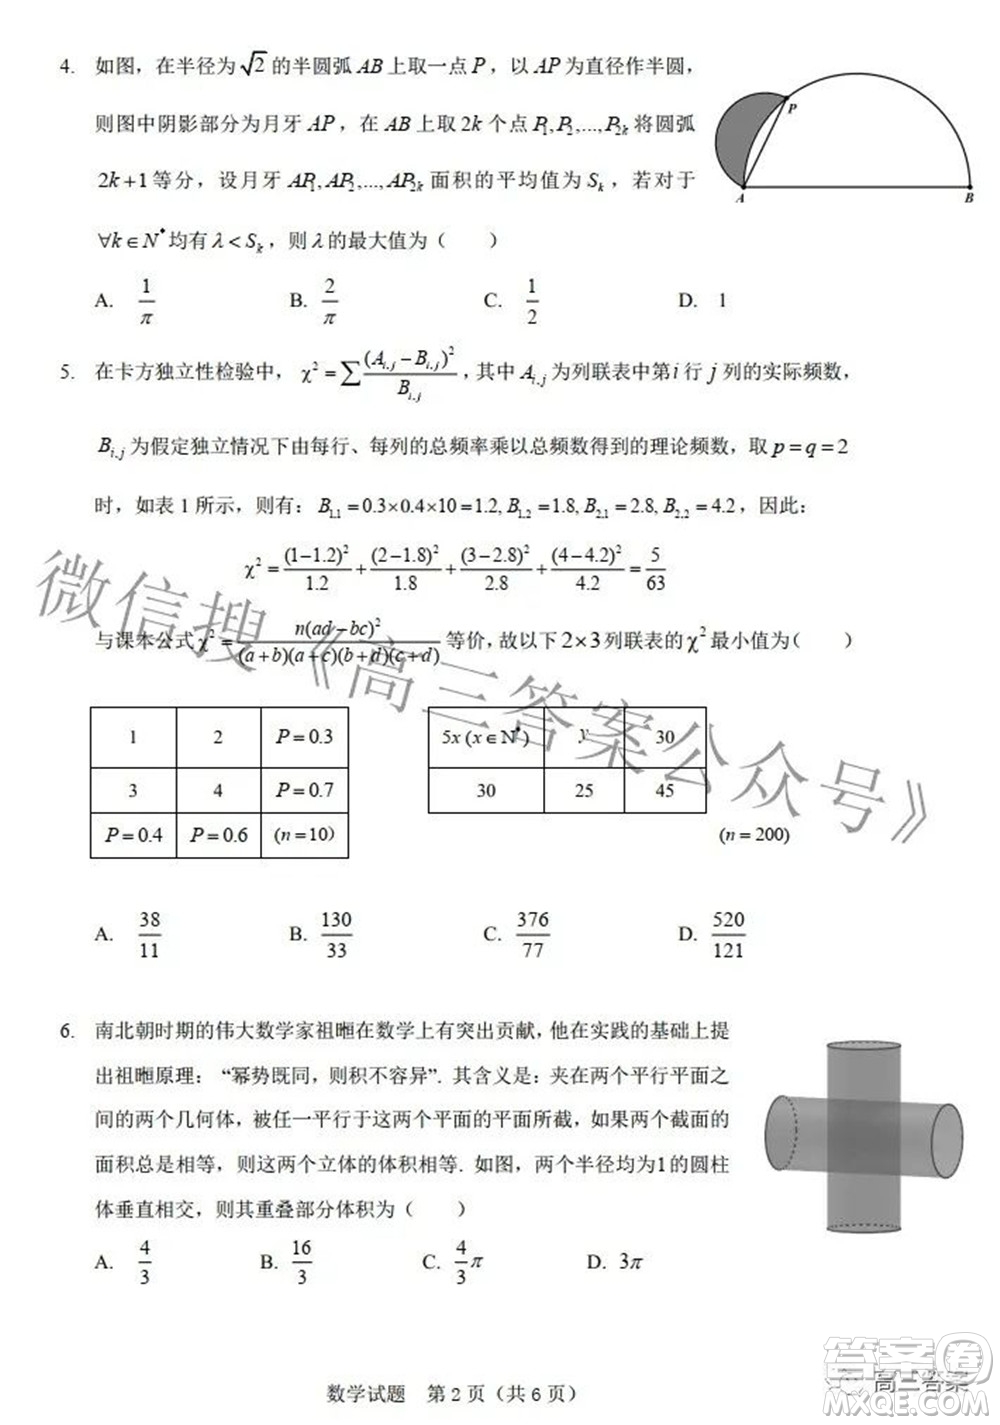 4. 如图，在半径为√2的半圆弧AB上取一点P，以AP为直径作半圆，
则图中阴影部分为月牙AP，在AB上取2k个点P₁,P₂,...,P₂ₖ将圆弧
2k+1等分，设月牙AP₁,AP₂,...,AP₂ₖ面积的平均值为Sₖ，若对于
∀k∈N*均有λ<Sₖ，则λ的最大值为（ ）
P
A B
A. 1/π B. 2/π C. 1/2 D. 1
5. 在卡方独立性检验中，χ²=∑(A_{i,j}−B_{i,j})²/B_{i,j}，其中A_{i,j}为列联表中第i行j列的实际频数，
B_{i,j}为假定独立情况下由每行、每列的总频率乘以总频数得到的理论频数，取p=q=2
时，如表1所示，则有：B_{1.1}=0.3×0.4×10=1.2,B_{1.2}=1.8,B_{2.1}=2.8,B_{2.2}=4.2，因此：
χ²=(1−1.2)²/1.2+(2−1.8)²/1.8+(3−2.8)²/2.8+(4−4.2)²/4.2=5/63
与课本公式χ²=n(ad−bc)²/(a+b)(a+c)(b+d)(c+d)等价，故以下2×3列联表的χ²最小值为（ ）
1 2 P=0.3
3 4 P=0.7
P=0.4 P=0.6 (n=10)
5x(x∈N*) y 30
30 25 45
(n=200)
A. 38/11 B. 130/33 C. 376/77 D. 520/121
6. 南北朝时期的伟大数学家祖暅在数学上有突出贡献，他在实践的基础上提
出祖暅原理：“幂势既同，则积不容异”. 其含义是：夹在两个平行平面之
间的两个几何体，被任一平行于这两个平面的平面所截，如果两个截面的
面积总是相等，则这两个立体的体积相等. 如图，两个半径均为1的圆柱
体垂直相交，则其重叠部分体积为（ ）
A. 4/3 B. 16/3 C. 4/3 π D. 3π
数学试题 第2页（共6页）
微信搜《高三答案公众号》
高三答案
答案圈
MXQE.COM